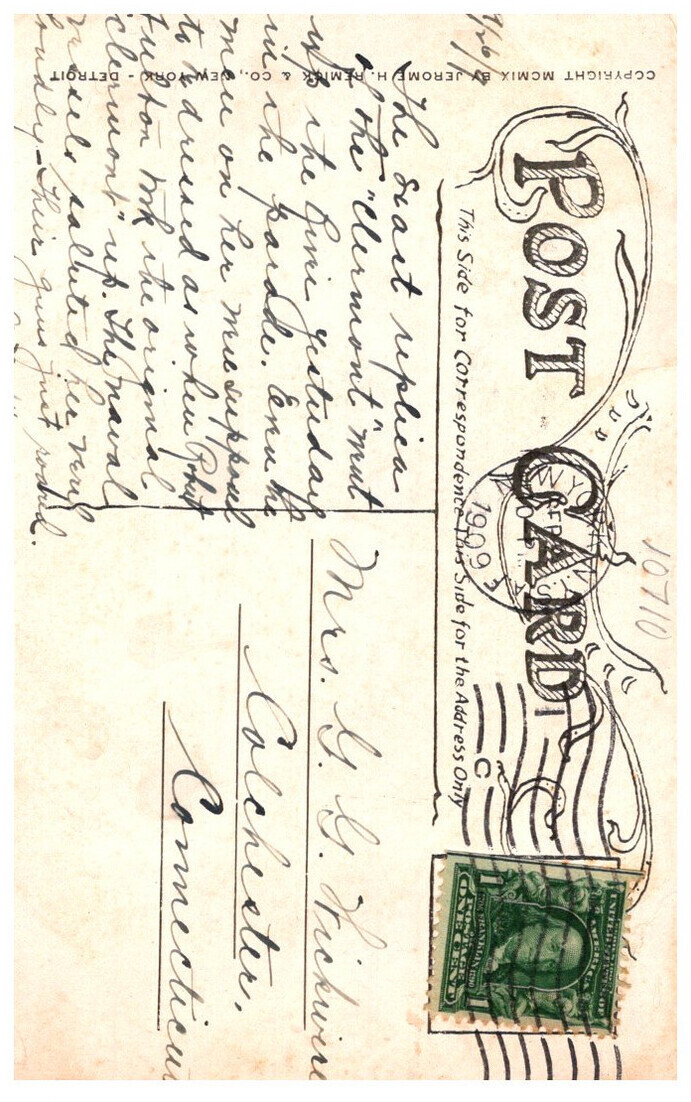 10710
POST CARD
NEW YORK
SEP
1909
C
This Side for Correspondence This Side for the Address Only
COPYRIGHT MCMIX BY JEROME H. REMICK & CO., NEW YORK - DETROIT
9/26/
The exact replica
of the "Clermont" went
up the River yesterday
in the parade. Even the
men on her were supposed
to be dressed as when Robt
Fulton took the original
"Clermont" up. The naval
vessels saluted her very
loudly - their guns just roared.
Mrs. G. G. Wickwire
Colchester,
Connecticut
1 1
ONE CENT